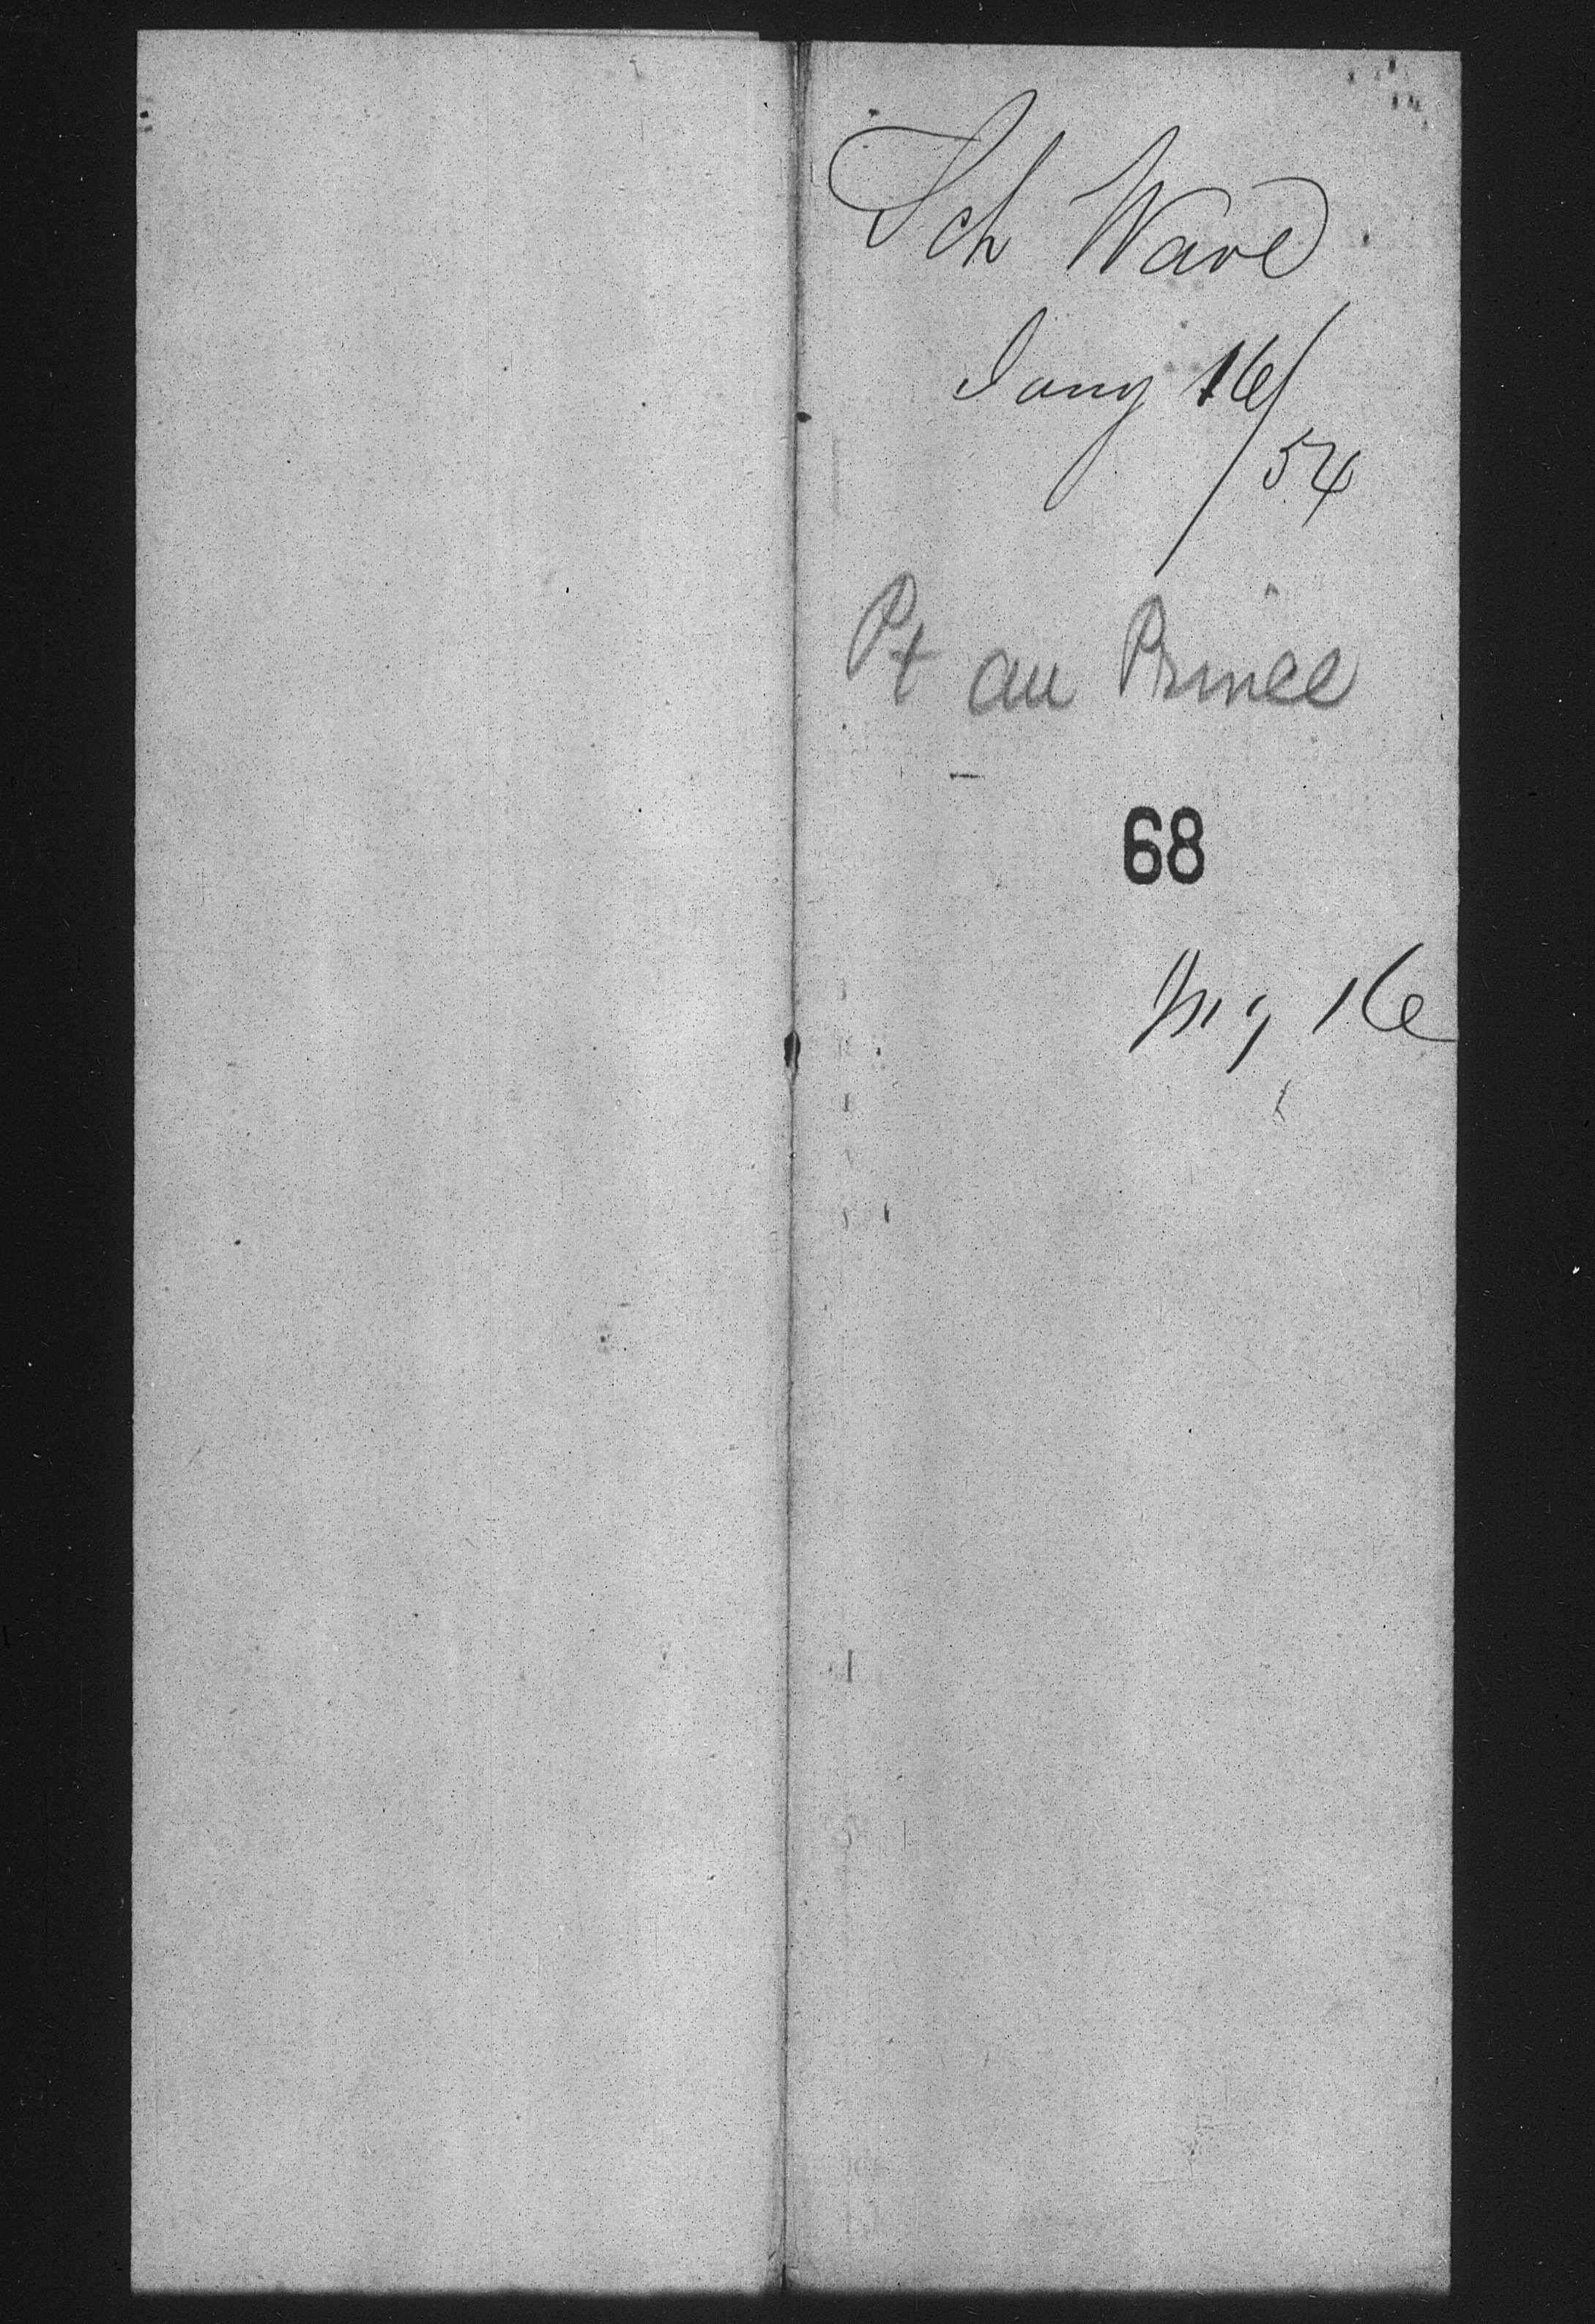 Sch Wave
Jany 16/54
Pt au Prince
68
16